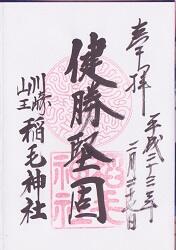 奉拝
平成二十三年
二月二十七日
健勝堅固
川崎
山王
稲毛神社